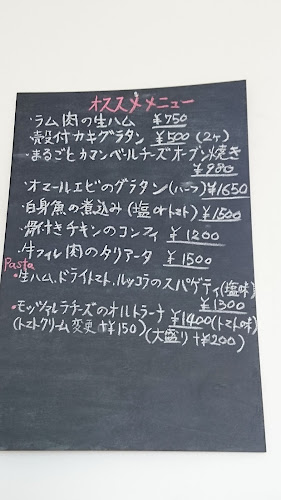 オススメメニュー
・ラム肉の生ハム ¥750
・殻付カキグラタン ¥500(2ヶ)
・まるごとカマンベールチーズオーブン焼き
¥980
・オマールエビのグラタン(ハーフ)¥1650
・白身魚の煮込み(塩orトマト)¥1500
・骨付きチキンのコンフィ ¥1200
・牛フィレ肉のタリアータ ¥1500
Pasta
・生ハム、ドライトマト、ルッコラのスパゲティ(塩味)
¥1300
・モッツァレラチーズのオルトラーナ ¥1400(トマト味)
(トマトクリーム変更 +¥150) (大盛り +¥200)